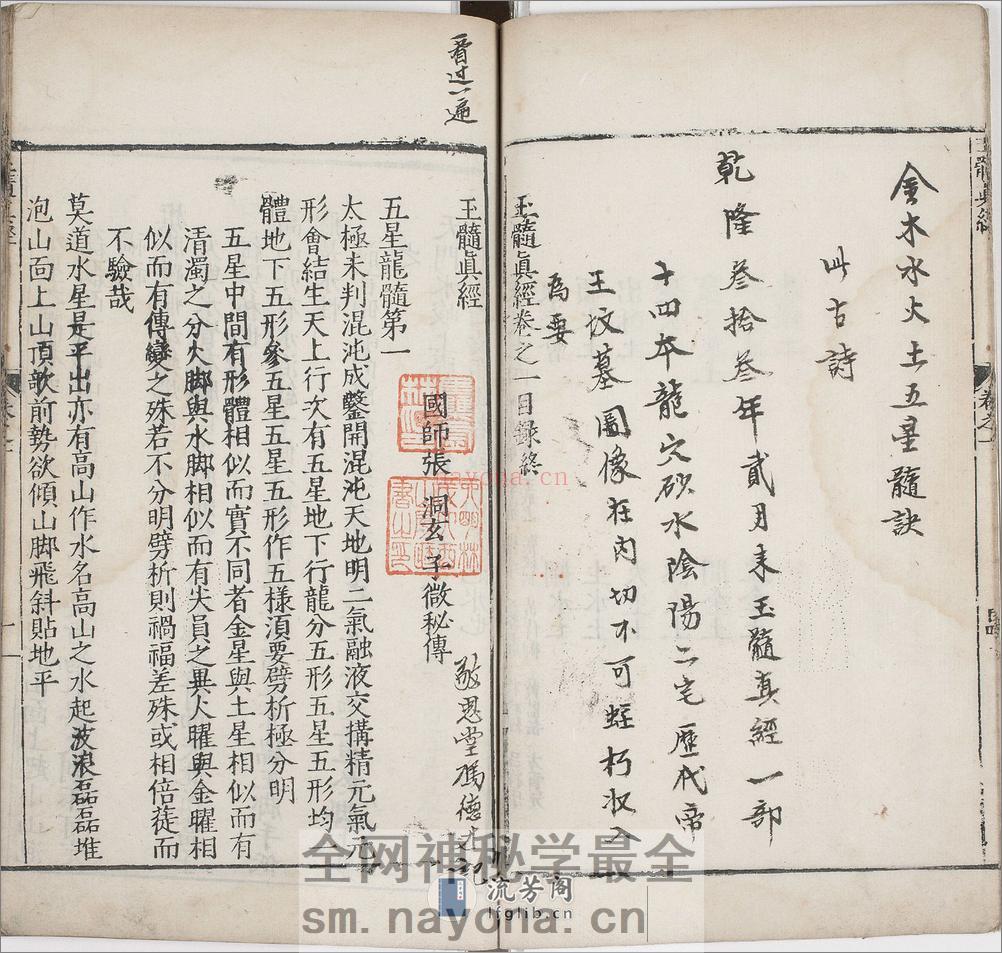 金木水火土五星髓訣
此古詩
乾隆叄拾叄年貳月来玉髓真經一部
十四本龍穴砂水陰陽二宅歷代帝
王坟墓圖像在内切不可蛀朽收入
為要
玉髓眞經卷之一目錄終
看过一遍
玉髓眞經
國師張洞玄子微秘傳
敬恩堂馮德
五星龍髓第一
太極未判混沌成鑿開混沌天地明二氣融液交搆精元氣元
形會結生天上行次有五星地下行龍分五形五星五形均一
體地下五形參五星五星五形作五樣須要劈析極分明
五星中間有形體相似而實不同者金星與土星相似而有
清濁之分火脚與水脚相似而有尖員之異火曜與金曜相
似而有傳變之殊若不分明劈析則禍福差殊或相倍蓰而
不驗哉
莫道水星是平出亦有高山作水名高山之水起波浪磊磊堆
泡山靣上山頂欹前勢欲傾山脚飛斜貼地平
一
玉髓真經
卷之一
全网神秘学最全
流芳阁
lfglib.cn
sm.nayona.cn
nayona.cn